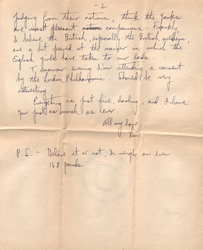 - 2
judging from their actions, think the Yanks
are most pleasant companions. Frankly
I believe the British, especially the British soldiers,
are a bit peeved at the manner in which the
English girls have taken to our lads.
Tomorrow evening I'm attending a concert
by the London Philharmonic. Should be very
interesting.
Everything is just fine, darling, and I love
you just as much as ever
All my love
P.S. - Believe it or not, I weigh an even
168 pounds